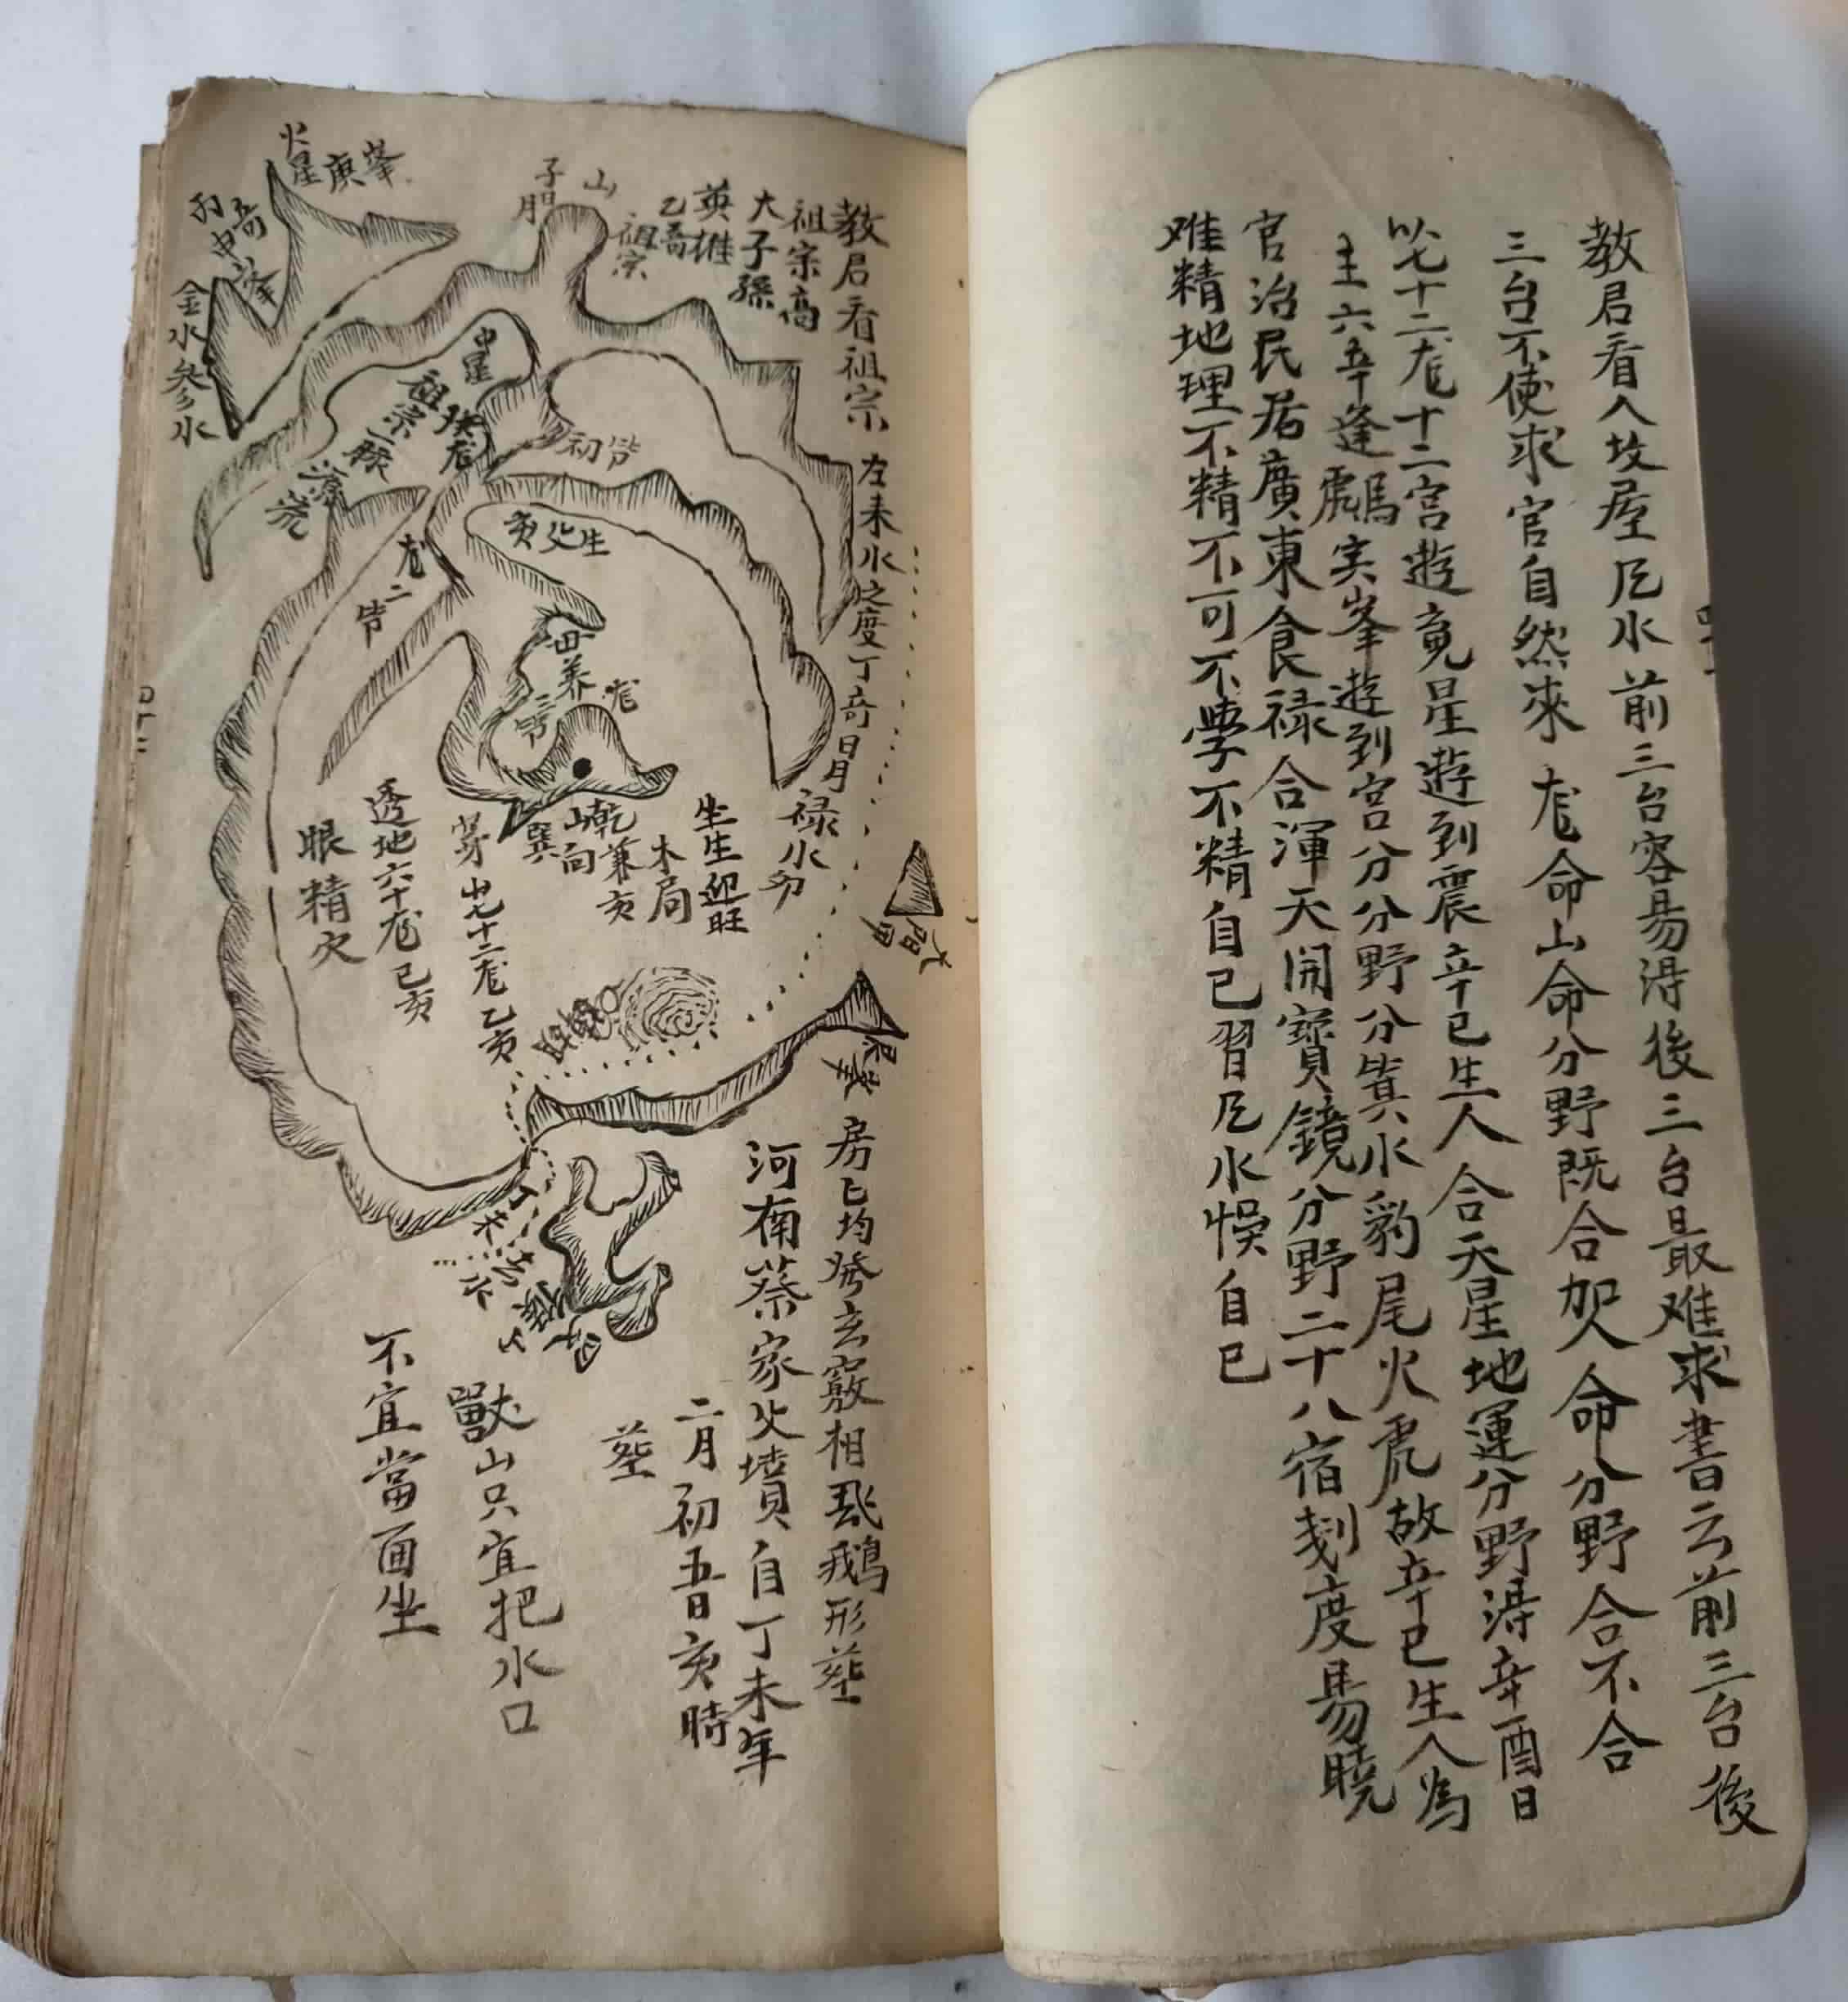 教君看入坟屋凥水前三台容易淂後三台最难求書云前三台後
三台不使求官自然來龙命山命分野既合贺人命分野合不合
以七十二龙十二宫遊竟星遊到震辛巳生人合天星地運分野淂辛酉日
主六五年逢鳫实峯遊到宫分分野分箕水豹尾火虎故辛巳生人為
官治民居廣東食禄合渾天開寶鏡分野二十八宿刻度易曉
难精地理不精不可不學不精自已習凥水悞自已
教君看祖宗
祖宗高
大子孫
英雄
乙奇
祖宗
山
子
左未水之度丁奇日月
禄水
房匕均發玄竅相飛鵝形塟
河南蔡家火墳自丁未年
二月初五日亥時
塟
獸山只宜把水口
不宜當面坐
火星庚峯
申峯
金水参水
中星
祖宗一條
癸龙
初节
龙二节
亥火生
养
龙
三节
生生迎旺
木局
乾兼亥
山向
巽
穿山七十二龙乙亥
透地六十龙已亥
眼精穴
太阳
甲
艮峯